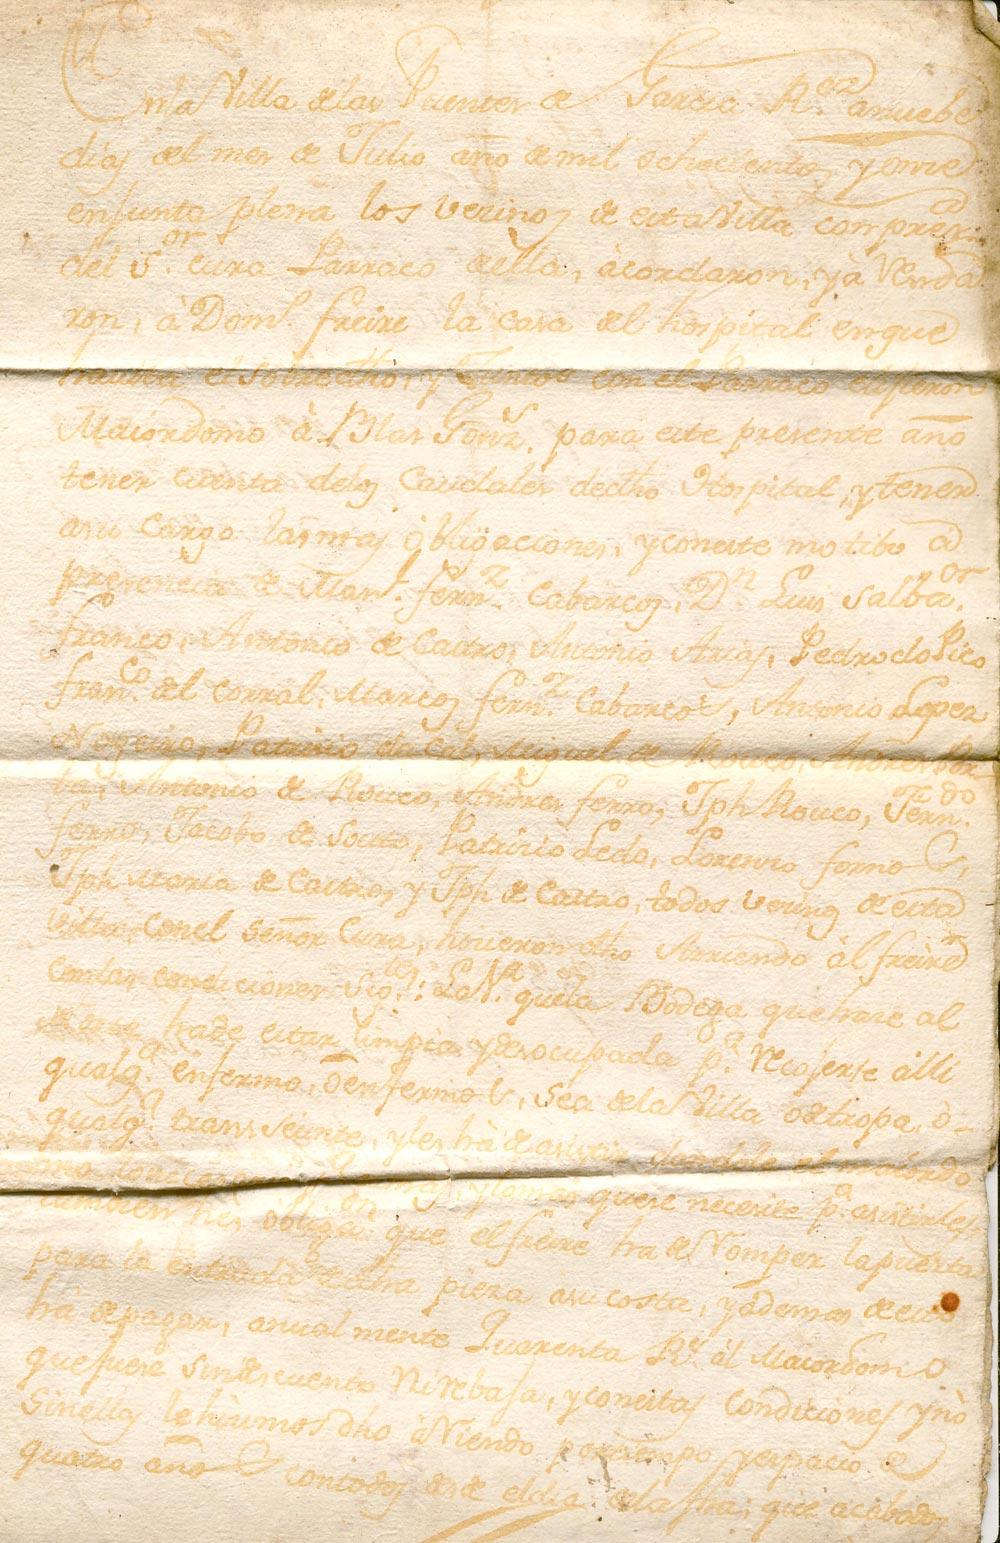 En la Villa de las Puentes de Garcia Rez a nuebe
dias del mes de Julio año de mil ochocientos, y onze
en Junta plena los vezinos de esta Villa con prez.a
del S.or cura Parraco della, àcordaron, y à Renda
ron, à Dom.o freire la casa del hospital en que
havita el sobre dho, y Juntos con el Parraco
Maiordomo à Blas Gonz.s para este presente año
tener cuenta delos Caudales de dho Hospital, y tener
a su Cargo las mas òbligaciones, y con este motibo a
presencia de Man.l fern.z Cabarcos, D.n Luis Salba.or
franco, Antonio de Castro, Antonio Arias, Pedro do Pico
fran.co del Corral, Marcos fern.z Cabarcos, Antonio Lopez
Noveiro, Patricio da Cal, Miguel de Rouco, Andres
Antonio de Rouco, Andres ferro, Jph Rouco, Fern.do
ferro, Jacobo de Souto, Patricio Ledo, Lorenzo fornos,
Jph Maria de Castro, y Jph de Castro, todos vezinos de esta
Villa, con el Señor Cura, hicieron dho Arriendo àl freire
con las condiciones Sig.tes: La 1.a que la Bodega que haze al
ha de estar limpia y desocupada p.a Recojerse àlli
qualq.a enfermo, ò enfermos, sea de la Villa o de tropa, ò
qualq.a transseunte, y les hà de asistir dandole el maiordo
mo y lo mas que se necesite p.a asistirles
tambien es obliga.n que el freire ha de Romper la puerta
para la entrada de dha pieza a su costa, y àdemas de esto
hà de pagar, anualmente Quarenta R.s àl Maiordomo
que fuere sin descuento Ni rebaja, y con estas Condiciones y nò
Sin ellas le hicimos dho àRiendo por tiempo y espacio de
quatro años contados desde el dia de la fha, que acabados